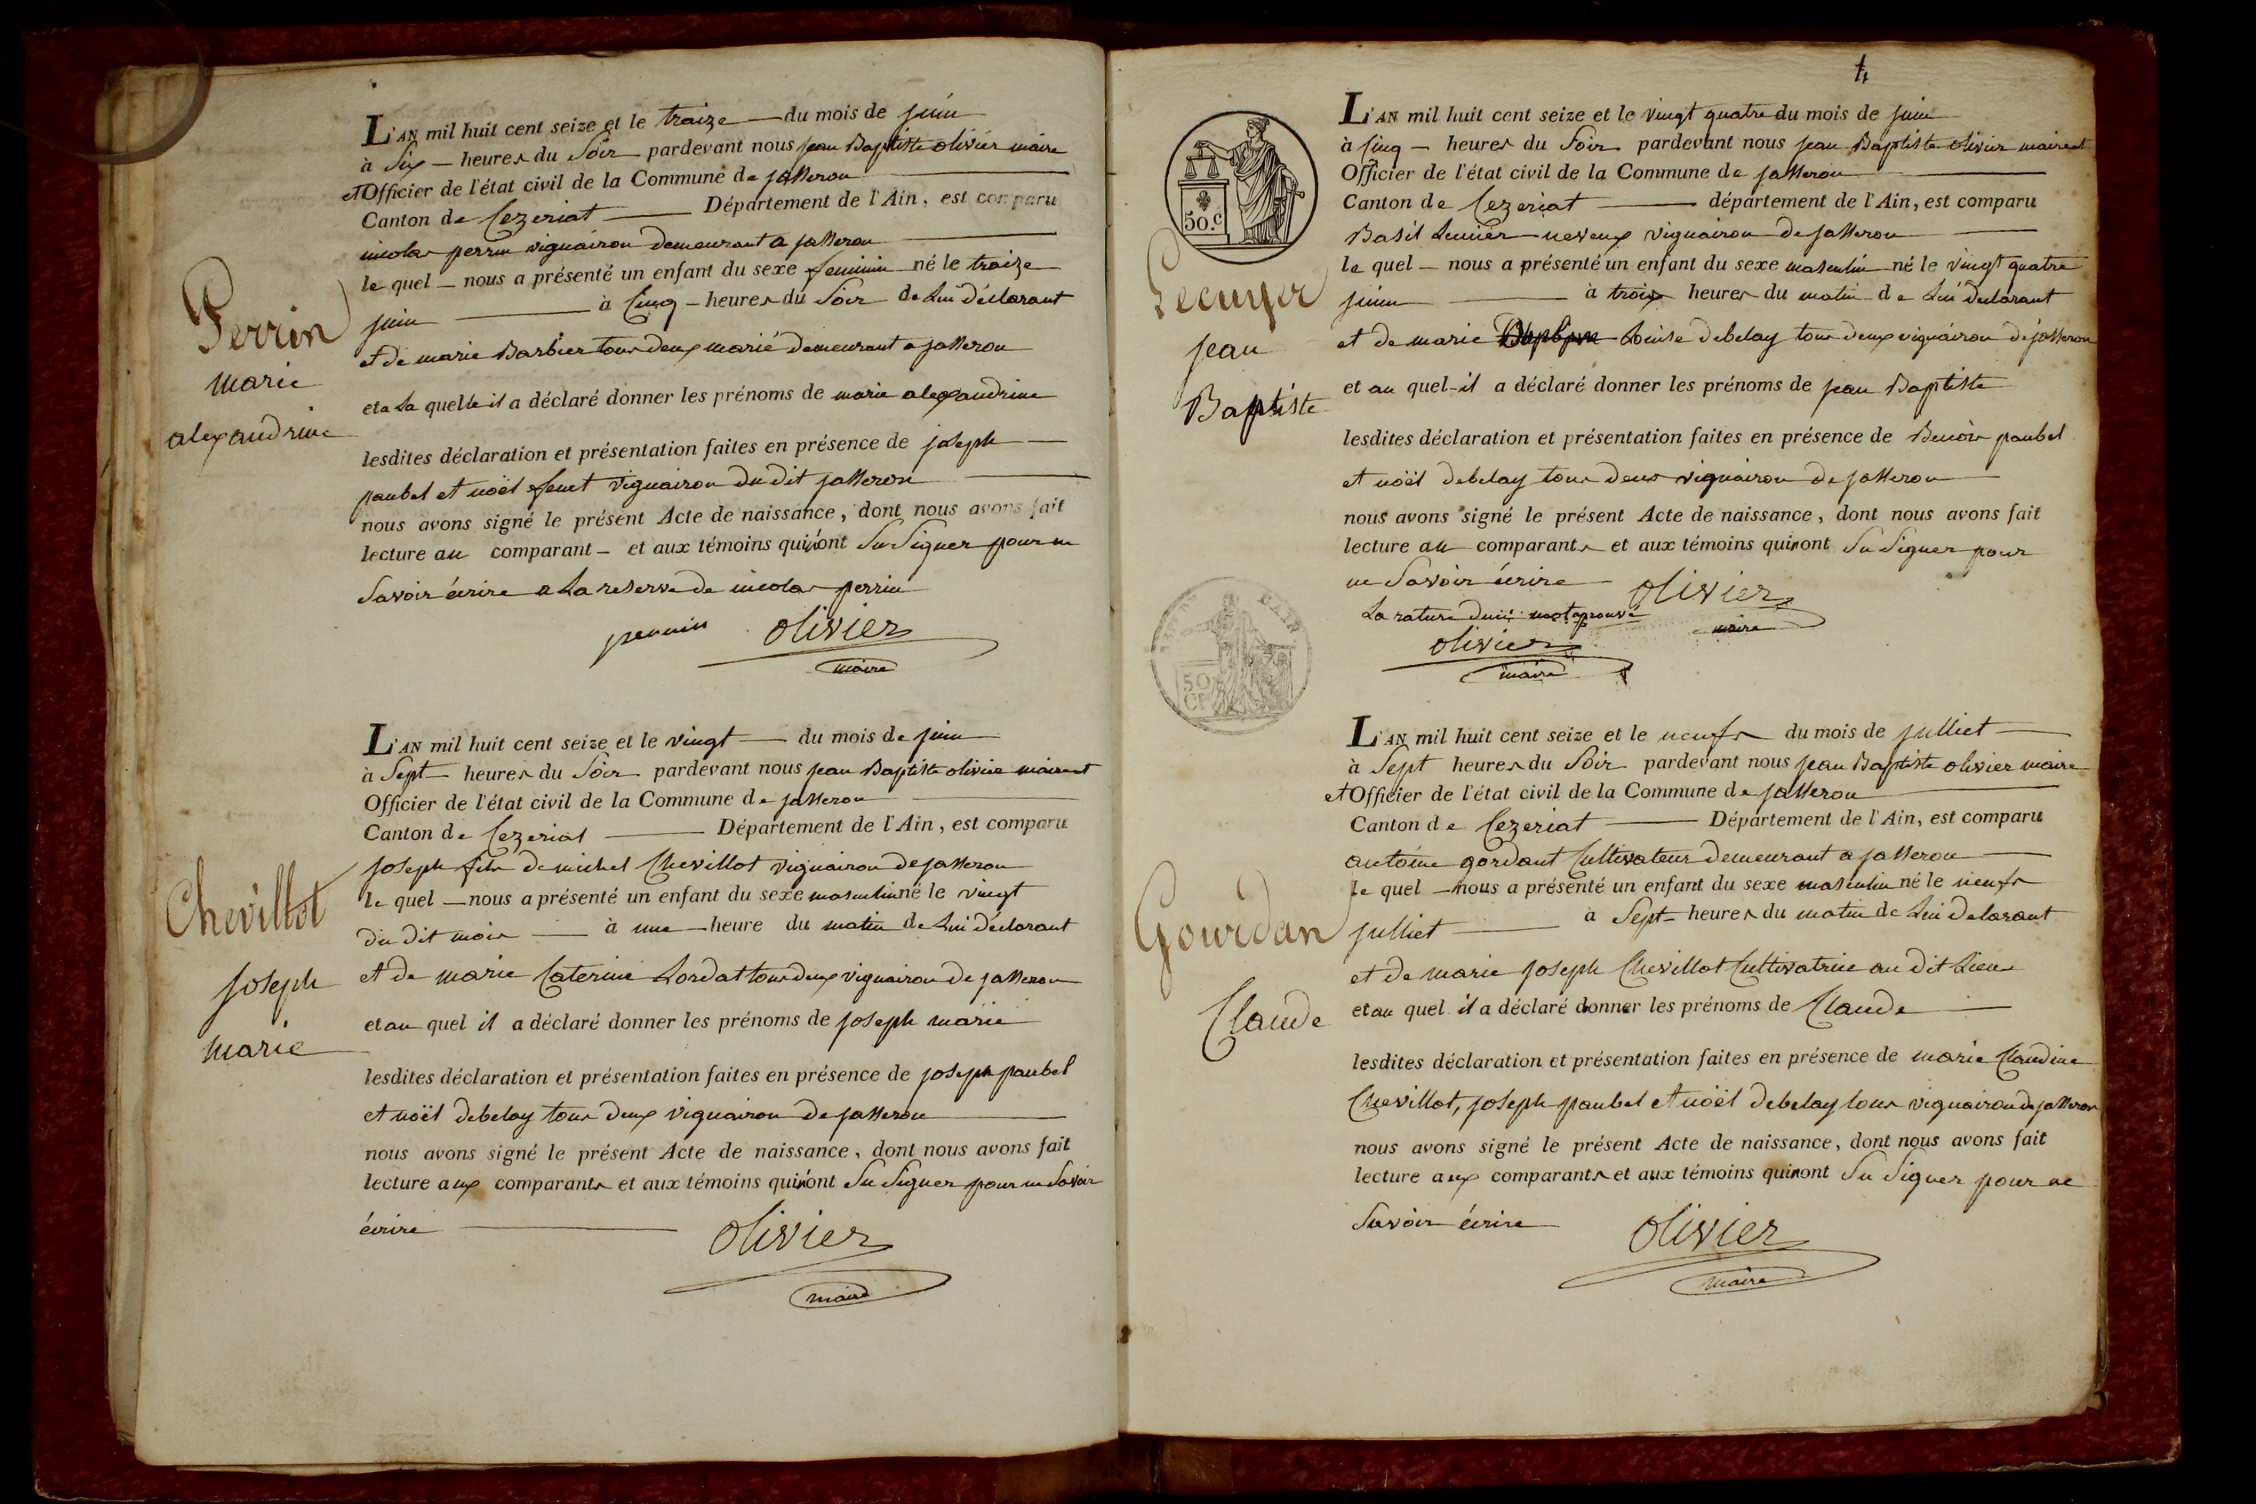 L'AN mil huit cent seize et le traize du mois de juin
à Six heures du Soir pardevant nous jean Baptiste olivier maire
et Officier de l'état civil de la Commune de jasseron
Canton de Cezeriat Département de l'Ain, est comparu
nicolas perrin vignairon demeurant a jasseron
le quel nous a présenté un enfant du sexe feminin né le traize
juin à Cinq heures du Soir de Lui déclarant
et de marie Barbier tous deux marié demeurant a jasseron
Perrin
marie
alexandrine
et a La quelle il a déclaré donner les prénoms de marie alexandrine
lesdites déclaration et présentation faites en présence de joseph
paubel et noël fenet vignairon du dit jasseron
nous avons signé le présent Acte de naissance, dont nous avons fait
lecture au comparant et aux témoins qui n'ont Su Signer pour ne
Savoir écrire a La reserve de nicolas perrin
perrin olivier
maire
L'AN mil huit cent seize et le vingt du mois de juin
à Sept heures du Soir pardevant nous jean Baptiste olivier maire et
Officier de l'état civil de la Commune de jasseron
Canton de Cezeriat Département de l'Ain, est comparu
joseph fils de michel Chevillot vignairon de jasseron
le quel nous a présenté un enfant du sexe masculin né le vingt
du dit mois à une heure du matin de Lui déclarant
et de marie Caterine Lordat tous deux vignairon de jasseron
Chevillot
joseph
marie
et au quel il a déclaré donner les prénoms de joseph marie
lesdites déclaration et présentation faites en présence de joseph paubel
et noël debelay tous deux vignairon de jasseron
nous avons signé le présent Acte de naissance, dont nous avons fait
lecture aux comparants et aux témoins qui n'ont Su Signer pour ne Savoir
écrire
olivier
maire
4
50.c
L'AN mil huit cent seize et le vingt quatre du mois de juin
à Cinq heures du Soir pardevant nous jean Baptiste olivier maire et
Officier de l'état civil de la Commune de jasseron
Canton de Cezeriat département de l'Ain, est comparu
Basil Lecuier neveux vignairon de jasseron
le quel nous a présenté un enfant du sexe masculin né le vingt quatre
juin à trois heures du matin de Lui declarant
et de marie Louise debelay tous deux vignairon de jasseron
Lecuyer
jean
Baptiste
et au quel il a déclaré donner les prénoms de jean Baptiste
lesdites déclaration et présentation faites en présence de Benoir paubel
et noël debelay tous deux vignairon de jasseron
nous avons signé le présent Acte de naissance, dont nous avons fait
lecture au comparants et aux témoins qui n'ont Su Signer pour
ne Savoir écrire olivier
maire
La rature d'un mot aprouvé
olivier
maire
50
L'AN mil huit cent seize et le neufs du mois de julliet
à Sept heures du Soir pardevant nous jean Baptiste olivier maire
et Officier de l'état civil de la Commune de jasseron
Canton de Cezeriat Département de l'Ain, est comparu
antoine gordant Cultivateur demeurant a jasseron
le quel nous a présenté un enfant du sexe masculin né le neufs
julliet à Sept heures du matin de Lui delarant
et de marie joseph Chevillot Cultivatrice au dit Lieu
Gourdan
Claude
et au quel il a déclaré donner les prénoms de Claude
lesdites déclaration et présentation faites en présence de marie Claudine
Chevillot, joseph paubel et noël debelay tous vignairon de jasseron
nous avons signé le présent Acte de naissance, dont nous avons fait
lecture aux comparants et aux témoins qui n'ont Su Signer pour ne
Savoir écrire olivier
maire